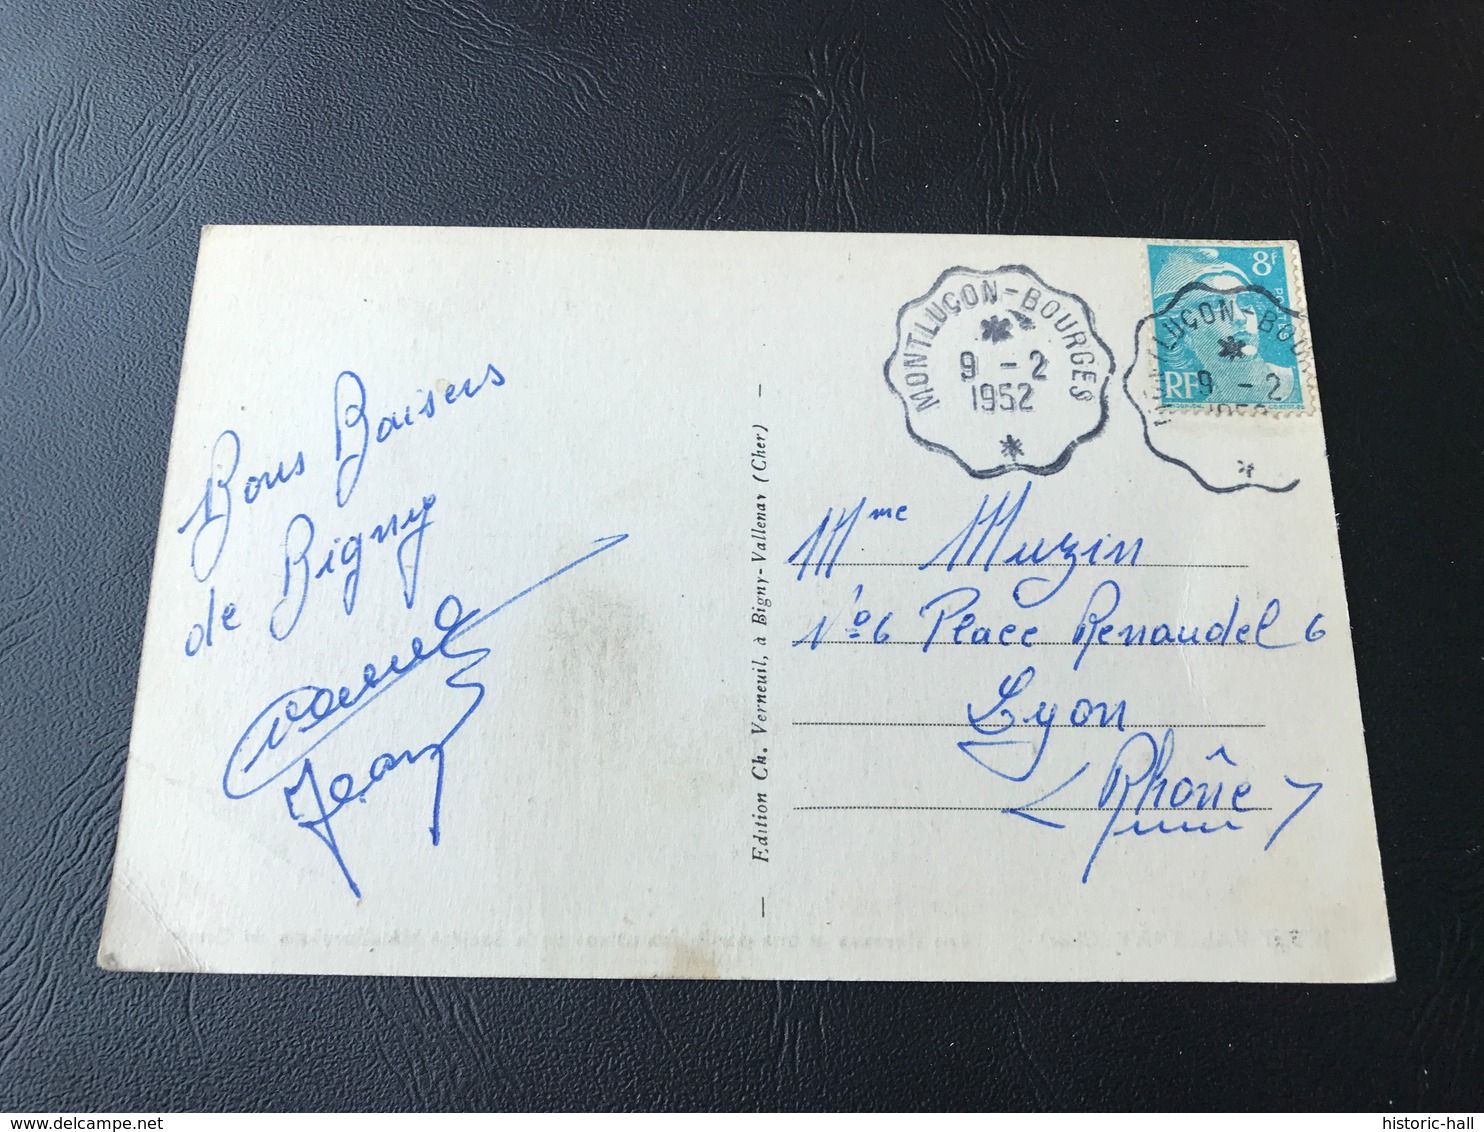 Bons Baisers
de Bigny
Jean
Edition Ch. Verneuil, à Bigny-Vallenay (Cher)
MONTLUÇON-BOURGES
9 - 2
1952
8f
RF
MONTLUÇON-BOU
9 - 2
1952
Mme Muzin
N° 6 Place Renaudel 6
Lyon
(Rhône)
historic-hall